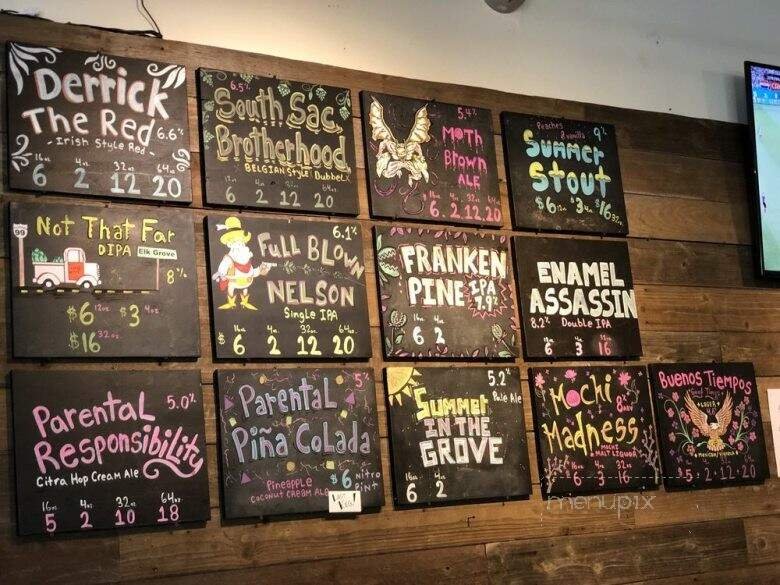 Derrick
The Red 6.6%
- Irish Style Red -
16oz 4oz 32oz 64oz
6 2 12 20
6.5%
South Sac
Brotherhood
BELGIAN STYLE Dubbel
6 2 12 20
5.4%
Moth
Brown
ALE
6 2 12 20
Peaches
& vanilla 9%
Summer
Stout
$6 12oz $3 4oz $16 32oz
99
Not That Far
DIPA
Elk Grove
8%
$6 12oz $3 4oz
$16 32oz
6.1%
Full Blown
Nelson
Single IPA
16oz 4oz 32oz 64oz
$6 2 12 20
FRANKEN
PINE IPA
7.9%
16oz 4oz
6 2
ENAMEL
ASSASSIN
8.2% Double IPA
6 3 16
Parental 5.0%
Responsibility
Citra Hop Cream Ale
16oz 4oz 32oz 64oz
5 2 10 18
5%
Parental
Pina Colada
Pineapple
Coconut Cream Ale
$6 Nitro
Pint
5.2%
Pale Ale
Summer
IN THE
GROVE
16oz 4oz
6 2
Mochi 8% ABV
Madness
MOCHI
MALT LIQUOR
6 3 16
Buenos Tiempos
LAGER
$5 2 12 20
menupix